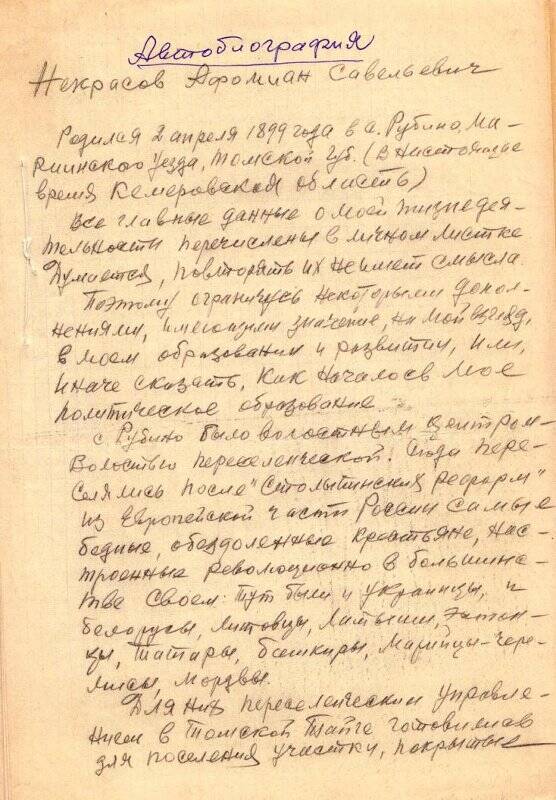 Автобиография
Некрасов Афомиан Савельевич
Родился 2 апреля 1899 года в с. Рубино, Ма-
риинского уезда, Томской губ. (В настоящее
время Кемеровская область)
Все главные данные о моей жизнедея-
тельности перечислены в личном листке
Думается, повторять их не имеет смысла.
Поэтому ограничусь некоторыми допол-
нениями, имеющими значение, на мой взгляд,
в моем образовании и развитии, или,
иначе сказать, как началось мое
политическое образование
с Рубино было волостным центром
Волостью переселенческой. Сюда пере-
селялись после "Столыпинских реформ"
из Европейской части России самые
бедные, обездоленные крестьяне, нас-
троенные революционно в большинс-
тве своем. Тут были и украинцы, и
белорусы, литовцы, латыши, эстон-
цы, татары, башкиры, марийцы-чере-
мисы, мордвы.
Для них переселенческим управле-
нием в Томской тайге готовились
для поселения участки, покрытые